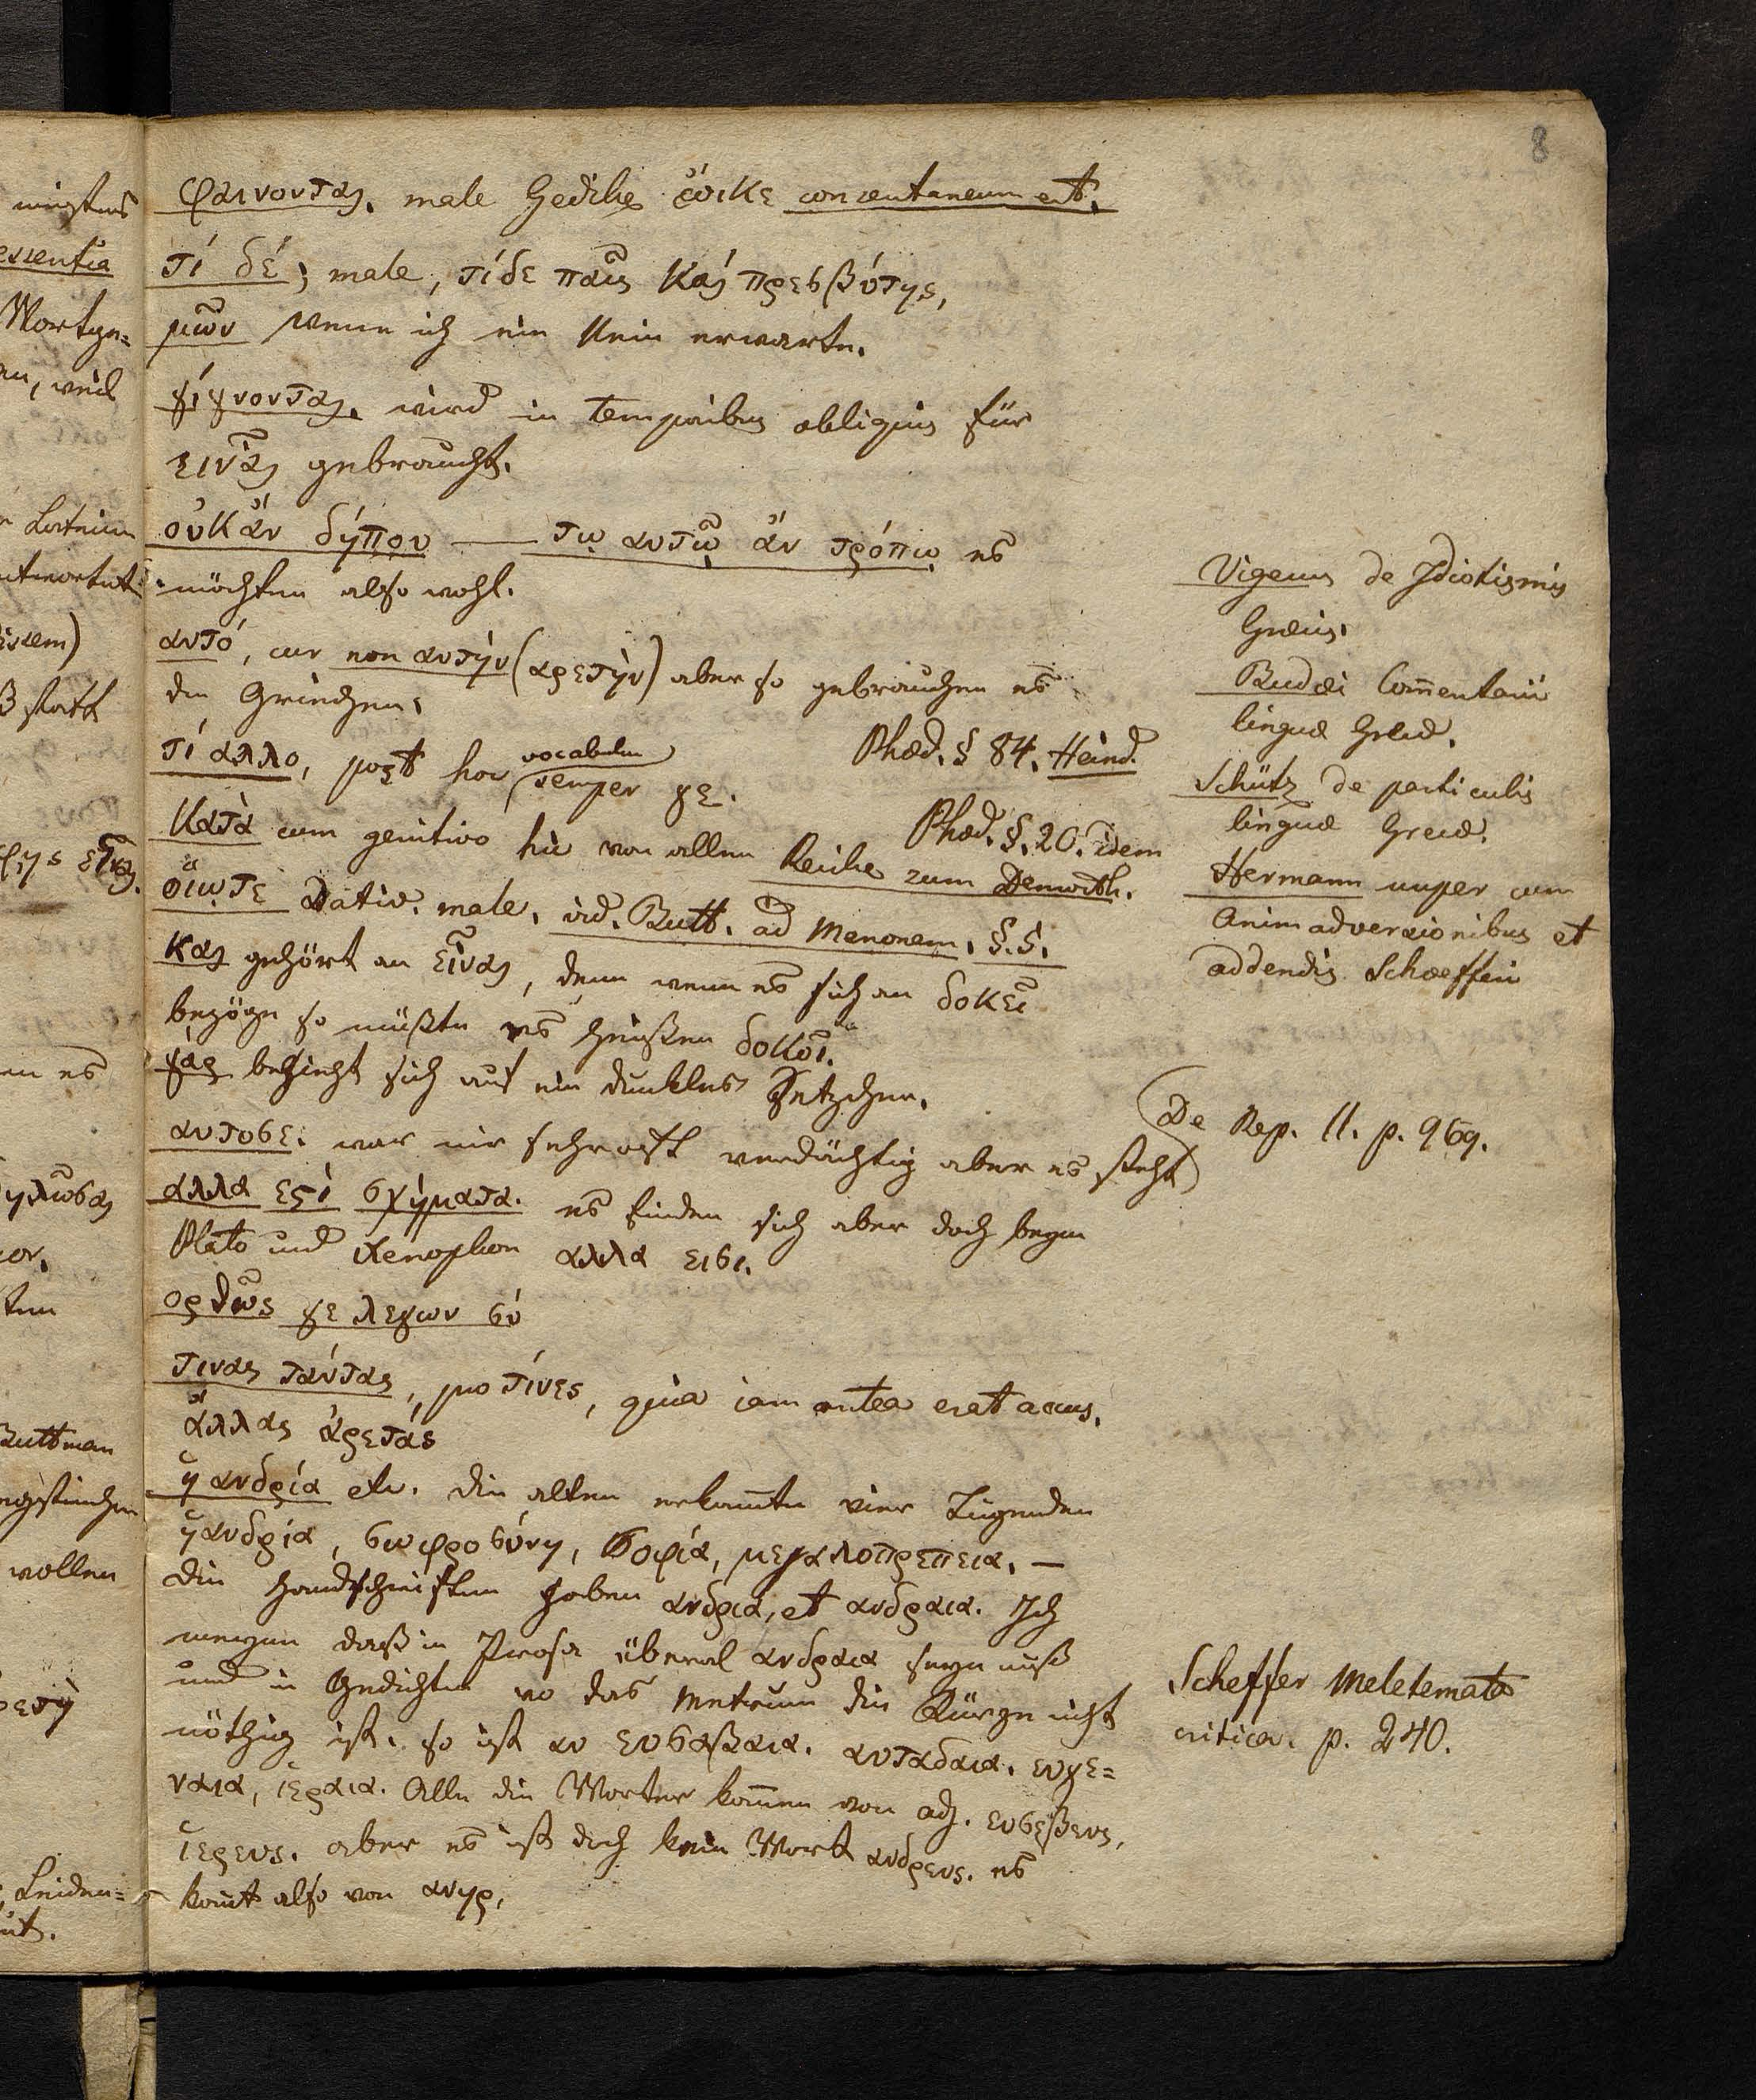 8
φαινονται. male Gedike ἔοικε consentaneum est.
τί δέ; male, τίδε παῖς καὶ πρεσβύτης,
μῶν wenn ich ein Nein erwarte.
γίγνονται. wird in temporibus obliquis für
εἶναι gebraucht.
οὐκἄν δήπου — τῳ αυτῷ ἄν τρόπῳ es
möchten also wohl.
αυτό, cur non αυτήν (αρετὴν) aber so gebrauchen es
die Griechen.
τί αλλο, post hoc vocabulum semper γε. Phæd. § 84. Heind.
Κατὰ cum genitivo hic von allen Phæd. §. 20. idem
Reiske zum Demosth.
οἵῳτε Dativ. male. vid. Butt. ad Menonem. §. 5.
και gehört an εἶναι, denn wenn es sich an δοκεῖ
bezöge so müßte es heißen δοκοῖ.
γὰρ bezieht sich auf ein dunkles Sätzchen.
αυτοσε. war mir sehr oft verdächtig aber es steht
αλλα εϛὶ σχήματα. es finden sich aber doch beym
Plato und Xenophon αλλα εισι.
ορθῶς γε λεγων σύ
τινας ταύτας, pro τίνες, quia iam antea erat accus.
ἄλλας ἀρετάς
ἡ ανδρία etc. die alten erkannten vier Tugenden
ἡανδρία, σωφροσύνη, σοφία, μεγαλοπρεπεια. —
die Handschriften haben ανδρια, et ανδραια. Ich
meyne daß in Prosa überal ανδραια seyn muß
und in Gedichten wo das Metrum die Kürze nicht
nöthig ist. so ist αυ ευσαβαια. αυταδαια. ευγε=
ναια, ἱεραια. Alle die Worter kom̄en von adj. ευσεβευς,
ἱερευς. aber es ist doch kein Wort ανδρευς. es
kom̄t also von ανηρ.
Vigerus de Idiotismis
Græcis.
Budæi Com̄entarii
linguæ Græcæ.
Schütz de particulis
linguæ Grecæ.
Hermann nuper cum
animadversionibus et
addendis Schaefferi
De Rep. II. p. 969.
Scheffer Meletemata
critica. p. 240.